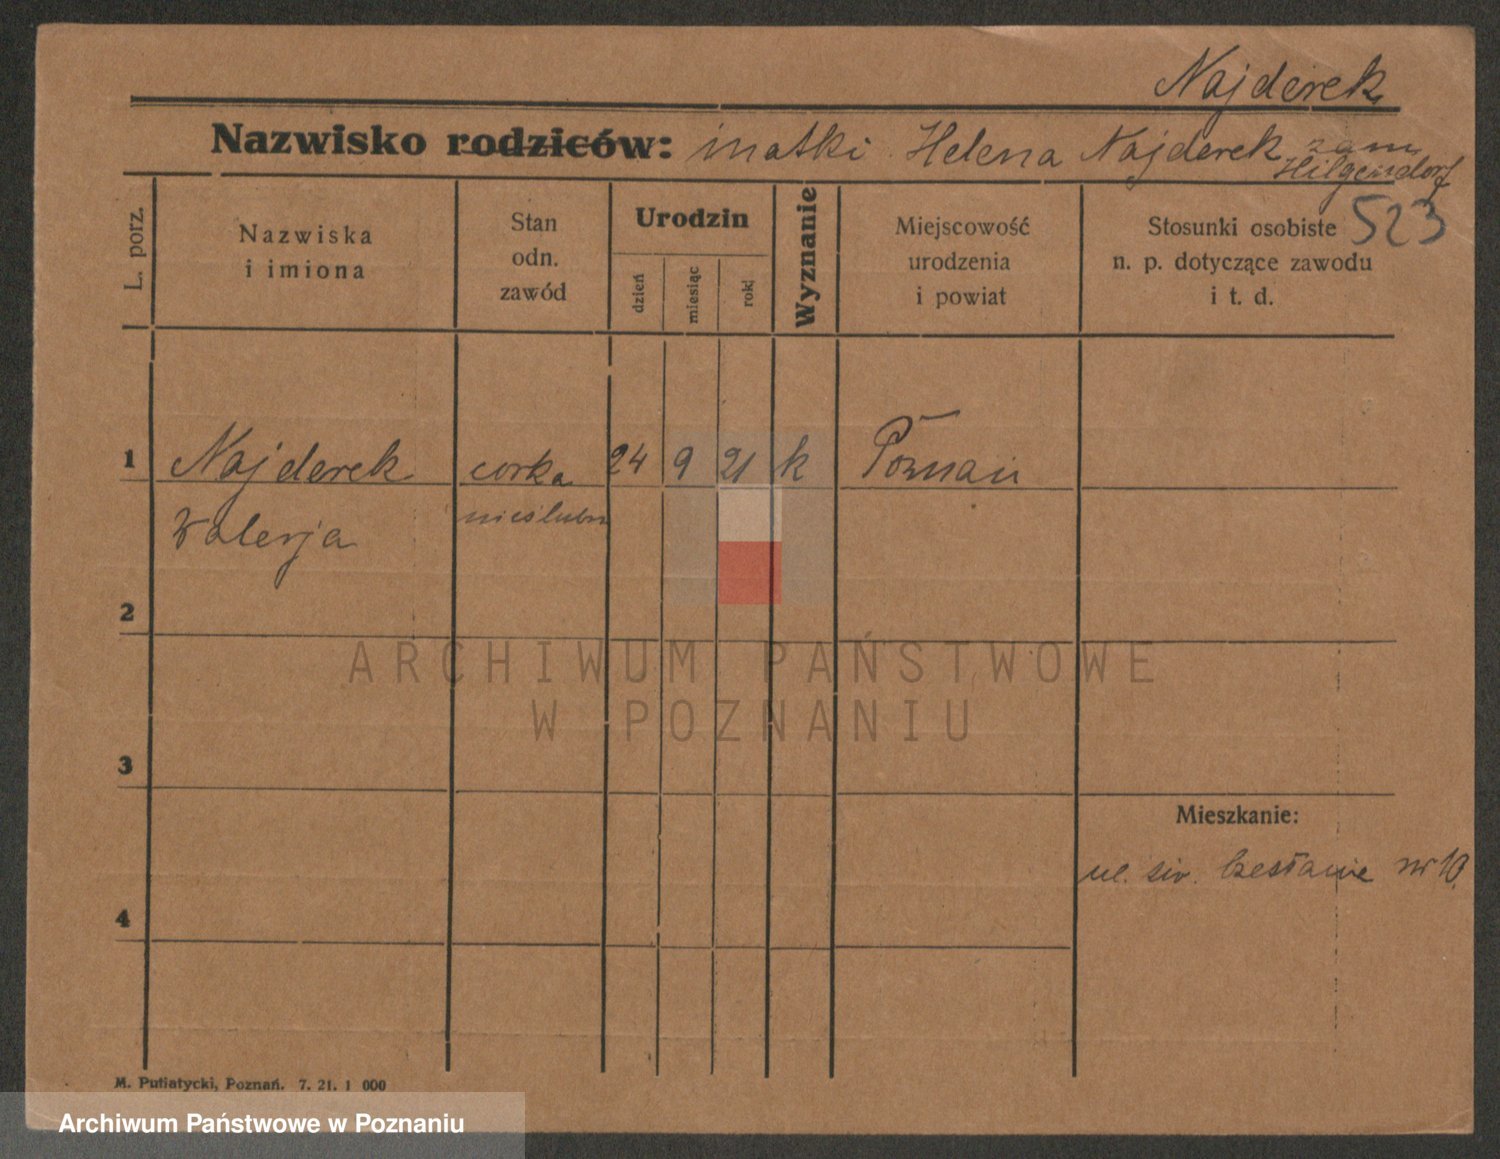 Najderek
Nazwisko rodziców: matki Helena Najderek zam.
Hilgendorf
523
L. porz.
Nazwiska
i imiona
Stan
odn.
zawód
Urodzin
dzień
miesiąc
rok
Wyznanie
Miejscowość
urodzenia
i powiat
Stosunki osobiste
n. p. dotyczące zawodu
i t. d.
1 Najderek corka 24 9 21 k Poznań
Walerja nieślubn
2
ARCHIWUM PAŃSTWOWE
W POZNANIU
3
Mieszkanie:
ul. św. Czesława nr 10.
4
M. Putiatycki, Poznań. 7. 21. 1 000
Archiwum Państwowe w Poznaniu